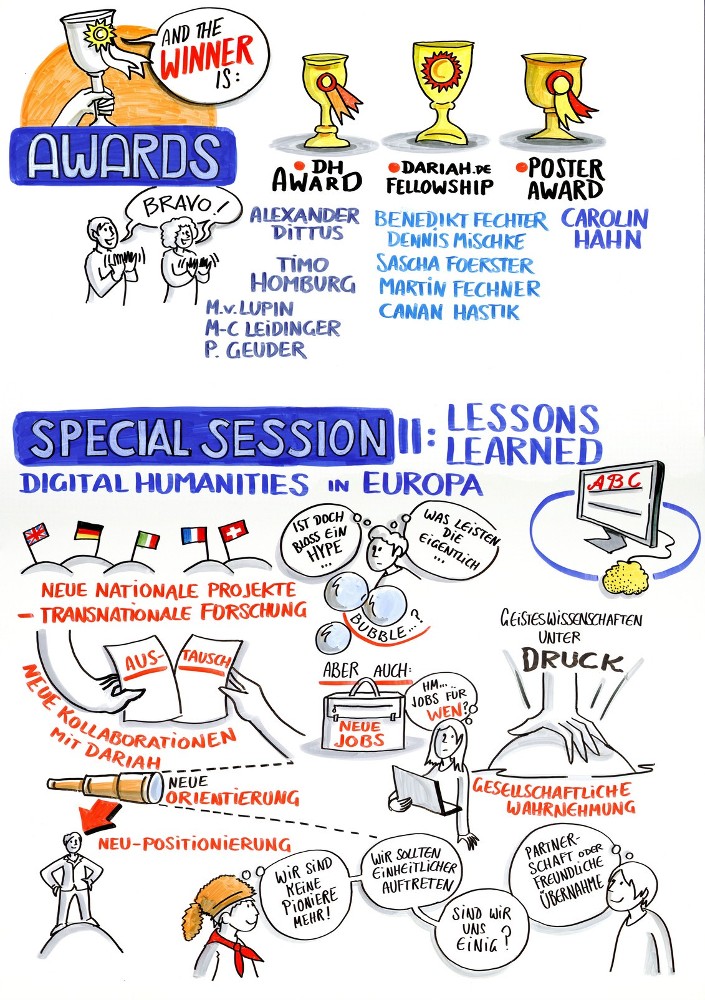 AND THE
WINNER
IS:
AWARDS
BRAVO!
• DH
AWARD
ALEXANDER
DITTUS
TIMO
HOMBURG
M.v. LUPIN
M-C LEIDINGER
P. GEUDER
• DARIAH.DE
FELLOWSHIP
BENEDIKT FECHTER
DENNIS MISCHKE
SASCHA FOERSTER
MARTIN FECHNER
CANAN HASTIK
• POSTER
AWARD
CAROLIN
HAHN
SPECIAL SESSION II: LESSONS
LEARNED
DIGITAL HUMANITIES IN EUROPA
NEUE NATIONALE PROJEKTE
– TRANSNATIONALE FORSCHUNG
IST DOCH
BLOSS EIN
HYPE
...
WAS LEISTEN
DIE
EIGENTLICH
...
BUBBLE...?
ABC
GEISTESWISSENSCHAFTEN
UNTER
DRUCK
GESELLSCHAFTLICHE
WAHRNEHMUNG
AUS-
TAUSCH
NEUE KOLLABORATIONEN
MIT DARIAH
ABER AUCH:
NEUE
JOBS
HM...
JOBS FÜR
WEN?
NEUE
ORIENTIERUNG
NEU-POSITIONIERUNG
WIR SIND
KEINE
PIONIERE
MEHR!
WIR SOLLTEN
EINHEITLICHER
AUFTRETEN
SIND WIR
UNS
EINIG?
PARTNER-
SCHAFT ODER
FREUNDLICHE
ÜBERNAHME